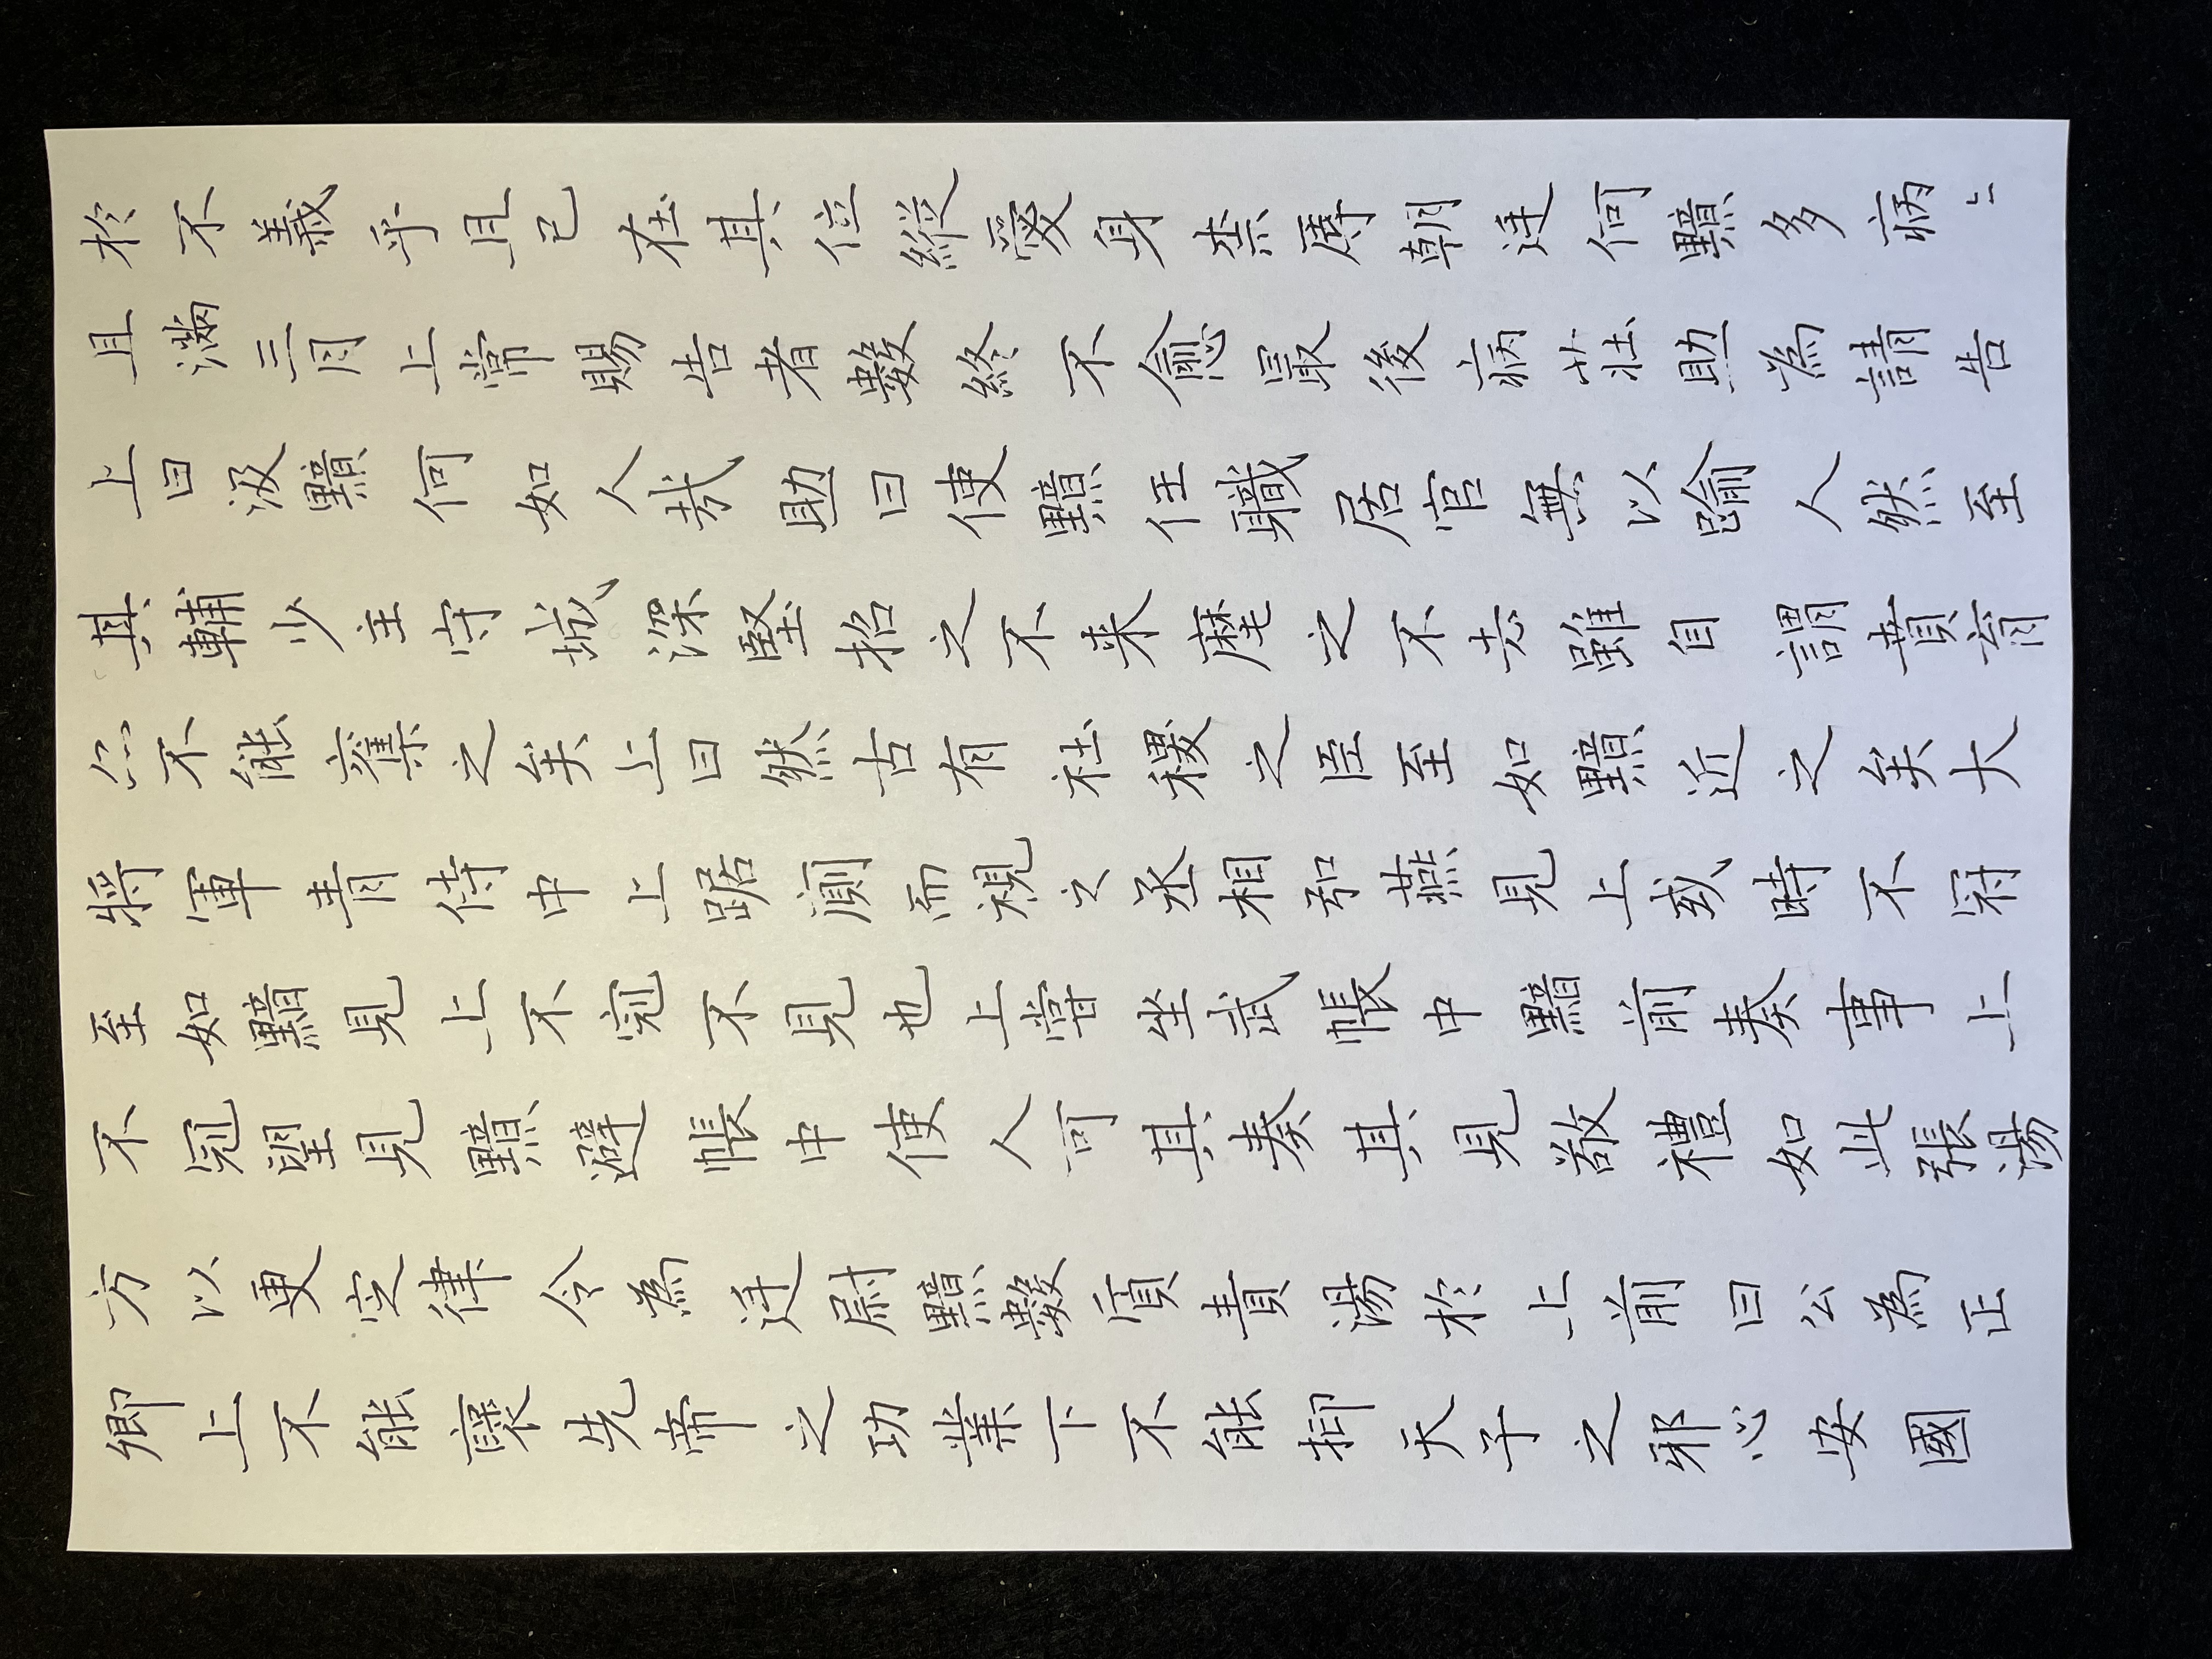 於不義乎且已在其位縱愛身柰辱朝廷何黯多病〻
且滿三月上常賜告者數終不愈最後病莊助為請告
上曰汲黯何如人哉助曰使黯任職居官無以踰人然至
其輔少主守城深堅招之不来麾之不去雖自謂賁育
亦不能奪之矣上曰然古有社稷之臣至如黯近之矣大
將軍青侍中上踞廁而視之丞相弘燕見上或時不冠
至如黯見上不冠不見也上嘗坐武帳中黯前奏事上
不冠望見黯避帳中使人可其奏其見敬禮如此張湯
方以更定律令為廷尉黯數質責湯於上前曰公為正
卿上不能襃先帝之功業下不能抑天子之邪心安國